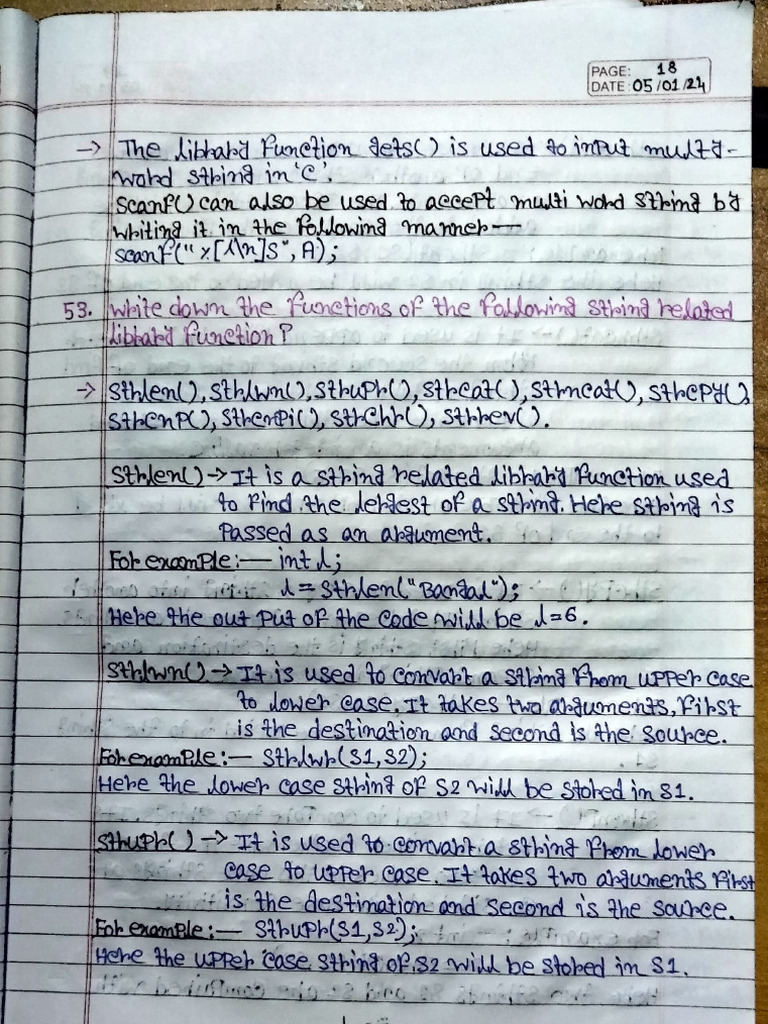 PAGE: 18
DATE: 05/01/24
→ The library function gets() is used to input multy-
word string in 'C'.
Scanf() can also be used to accept multi word string by
writing it in the following manner—
scanf("%[^\n]S", A);
53. Write down the functions of the following string related
library function?
→ Strlen(), Strlwn(), Strupr(), Strcat(), Strncat(), Strcpy(),
Strcnp(), Strcmpi(), Strchr(), Strrev().
Strlen() → It is a string related library function used
to find the lergest of a string. Here string is
passed as an argument.
For example:— int l;
l = Strlen("Bangal");
Here the out put of the code will be l=6.
Strlwn() → It is used to convart a string from upper case
to lower case. It takes two arguments, first
is the destination and second is the source.
For example:— Strlwr(S1,S2);
Here the lower case string of S2 will be stored in S1.
Strupr() → It is used to convart a string from lower
case to upper case. It takes two arguments first
is the destination and second is the source.
For example:— Strupr(S1,S2);
Here the upper case string of S2 will be stored in S1.